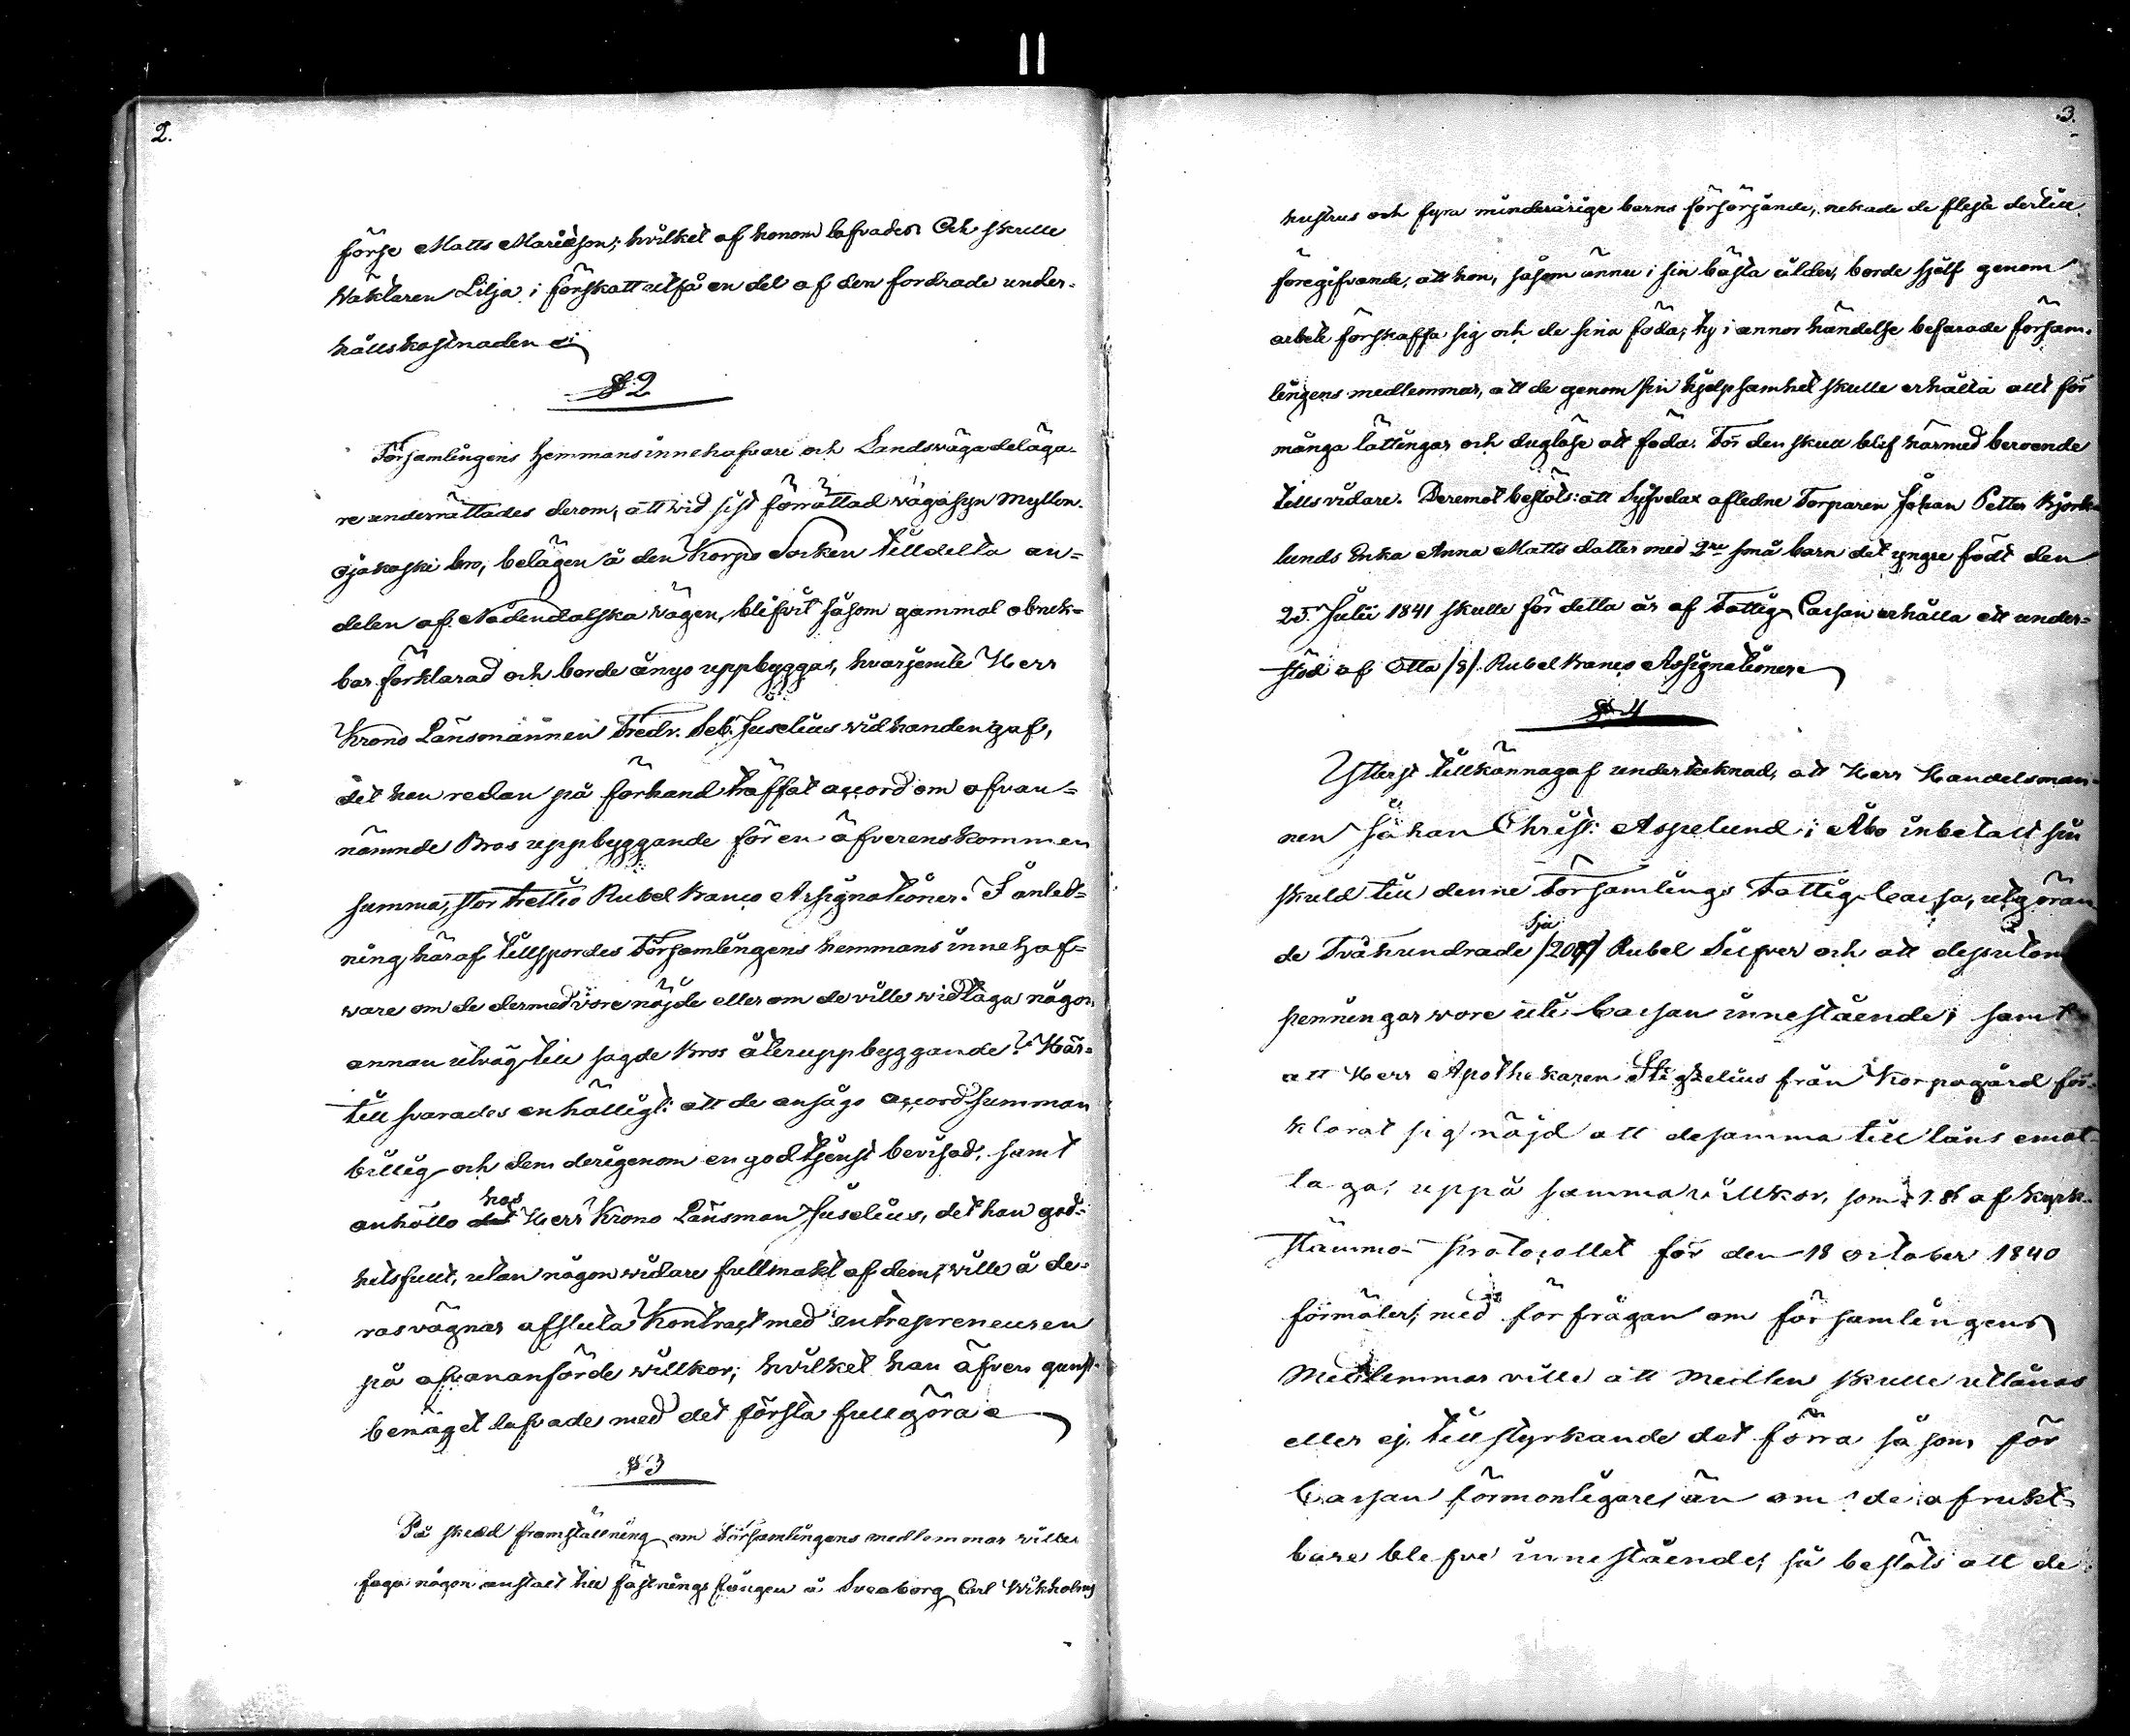 2.
förse Matts Mariæson; hvilket af honom lofvades. Och skulle
Waktaren Lilja i förskott utfå en del af den fordrade under-
hållskostnaden
§ 2
Församlingens Hemmansinnehafvare och Landswägadeläga-
re underrättades derom, att wid sist förrättad vägasyn Myllen-
ojakoski bro, belägen å den Korpo Socken tilldelta an-
delen af Nådendalska wägen, blifvit såsom gammal obruk-
bar förklarad och borde å nyo uppbyggas, hvarjemte Herr
Krono Länsmannen Fredr. Seb. Juselius vidhandengaf,
det han redan på förhand träffat accord om ofvan-
nämnde Bros uppbyggande för en öfverenskommen
summa, stor trettio Rubel Banco Assignationer. I anled-
ning häraf tillspordes Församlingens hemmans innehaf-
ware om de dermed vore nöjde eller om de ville widtaga någon
annan utväg till sagde Bros återuppbyggande? Här-
till svarades enhälligt: att de ansågo accordsumman
billig och dem derigenom en god tjenst bevisad, samt
anhöllo hos Herr Krono Länsman Juselius, det han god-
hetsfullt, utan någon widare fullmakt af dem, wille å de-
ras vägnar afsluta Kontract med entrepreneuren
på ofvananförde willkor; hvilket han äfven gunst-
benäget lofvade med det första fullgöra
§ 3
På skedd framställning om Församlingens medlemmar ville
foga någon anstalt till fästnings fången å Sveaborg Carl Wikholms
3.
hustrus och fyra minderårige barns försörjande, nekade de fleste dertill
föregifvande, att hon, såsom ännu i sin bästa ålder, borde sjelf genom
arbete förskaffa sig och de sina föda; ty i annor händelse befarade försam-
lingens medlemmar, att de genom sin hjelpsamhet skulle erhålla allt för
många lättingar och duglöse att föda. För den skull blef härmed beroende
tillsvidare. Deremot beslöts: att Sysvelax afledne Torparen Johan Petter Björk-
lunds Enka Anna Matts dotter med 2ne små barn det yngre födt den
25. Julii 1841 skulle för detta år af Fattig Cassan erhålla ett under-
stöd af Otta /8/ Rubel Banco Assignationer
§ 4
Ytterst tillkännagaf undertecknad, att Herr Handelsman-
nen Johan Christ: Aspelund i Åbo inbetalt sin
skuld till denne Församlings Fattig-Cassa, utgöran-
sju
de Tvåhundrade /207/ Rubel Silfver och att dessutom
penningar wore uti Cassan innestående; samt
att Herr Apothekaren Stigzelius från Korpogård för-
klarat sig nöjd att desamma till låns emot-
taga, uppå samma villkor, som i 1. § af Kyrk-
stämmo-Protocollet för den 18 October 1840
förmäles; med förfrågan om församlingens
Medlemmar ville att medlen skulle utlånas
eller ej. tillstyrkande det förra såsom för
Cassan förmonligare, än om de ofrukt-
bare blefve innestående; så beslöts att de